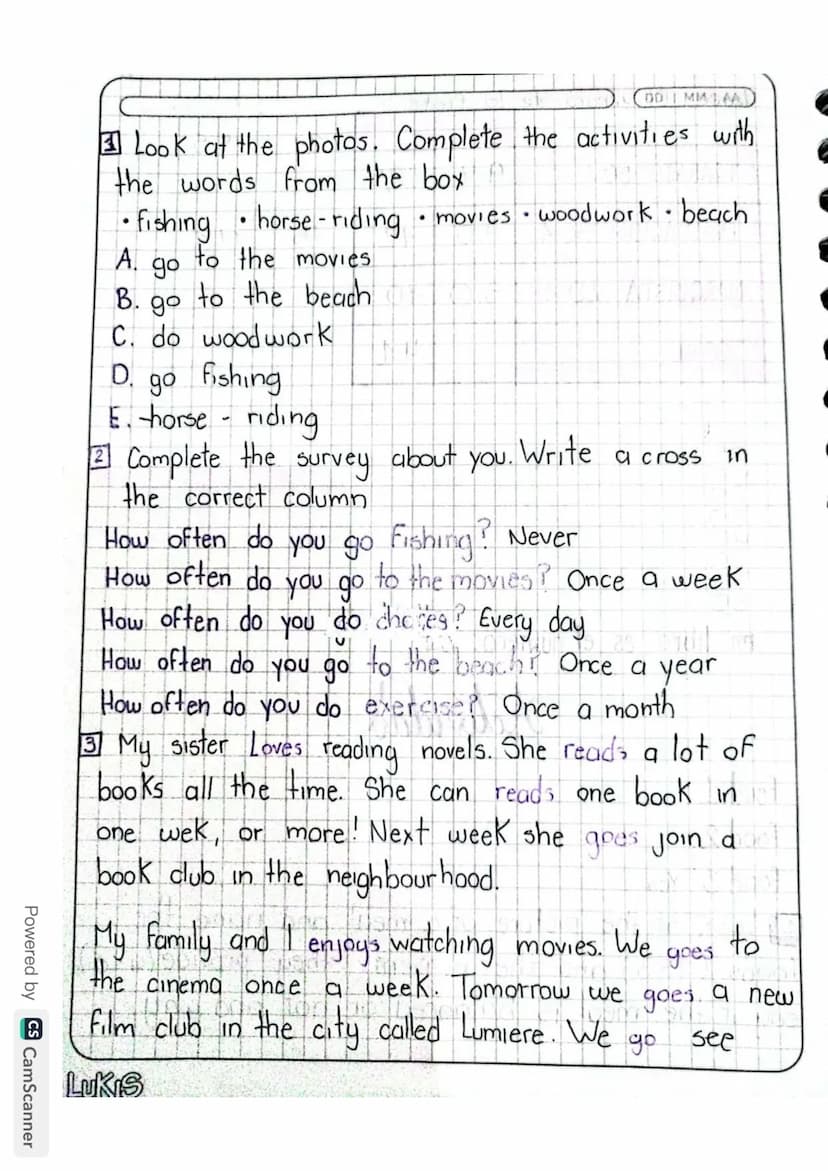 DD | MM | AA
1 Look at the photos. Complete the activities with
the words from the box
• fishing • horse-riding • movies • woodwork • beach
A. go to the movies
B. go to the beach
C. do woodwork
D. go fishing
E. horse - riding
2 Complete the survey about you. Write a cross in
the correct column
How often do you go fishing? Never
How often do you go to the movies? Once a week
How often do you do? Every day
How often do you go to the beach? Once a year
How often do you do exercise? Once a month
3 My sister Loves reading novels. She reads a lot of
books all the time. She can reads one book in
one wek, or more! Next week she goes join a
book club in the neighbourhood.
My family and I enjoys watching movies. We goes to
the cinema once a week. Tomorrow we goes a new
film club in the city called Lumiere. We go see
LUKIS
Powered by CS CamScanner